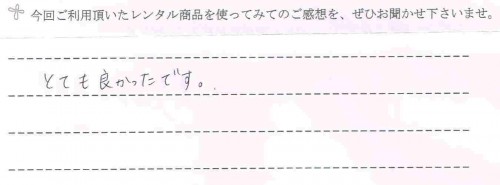 今回ご利用頂いたレンタル商品を使ってみてのご感想を、ぜひお聞かせ下さいませ。
とても良かったです。